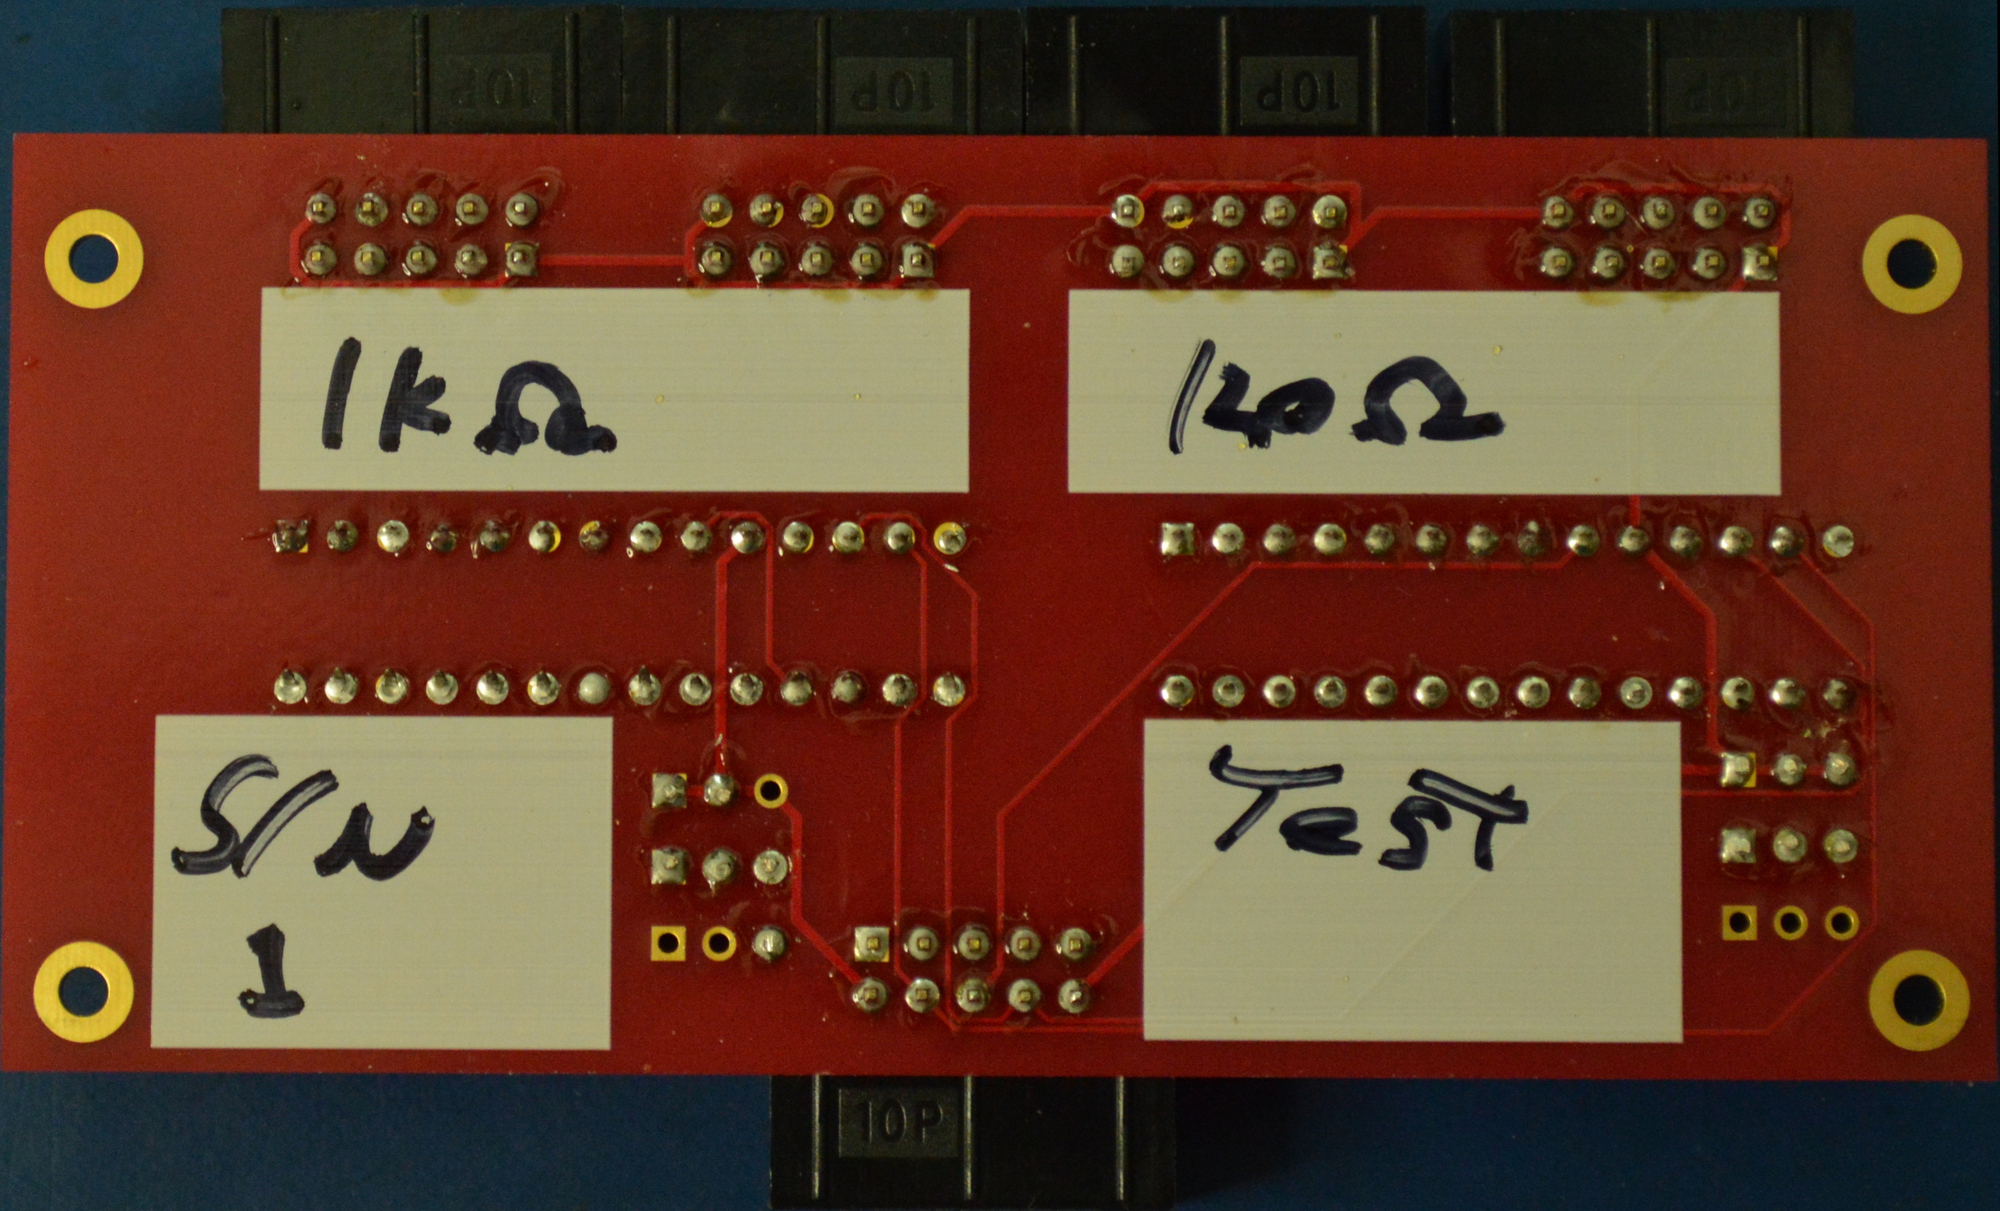 10P
10P
10P
10P
1kΩ
120Ω
S/N
1
Test
10P